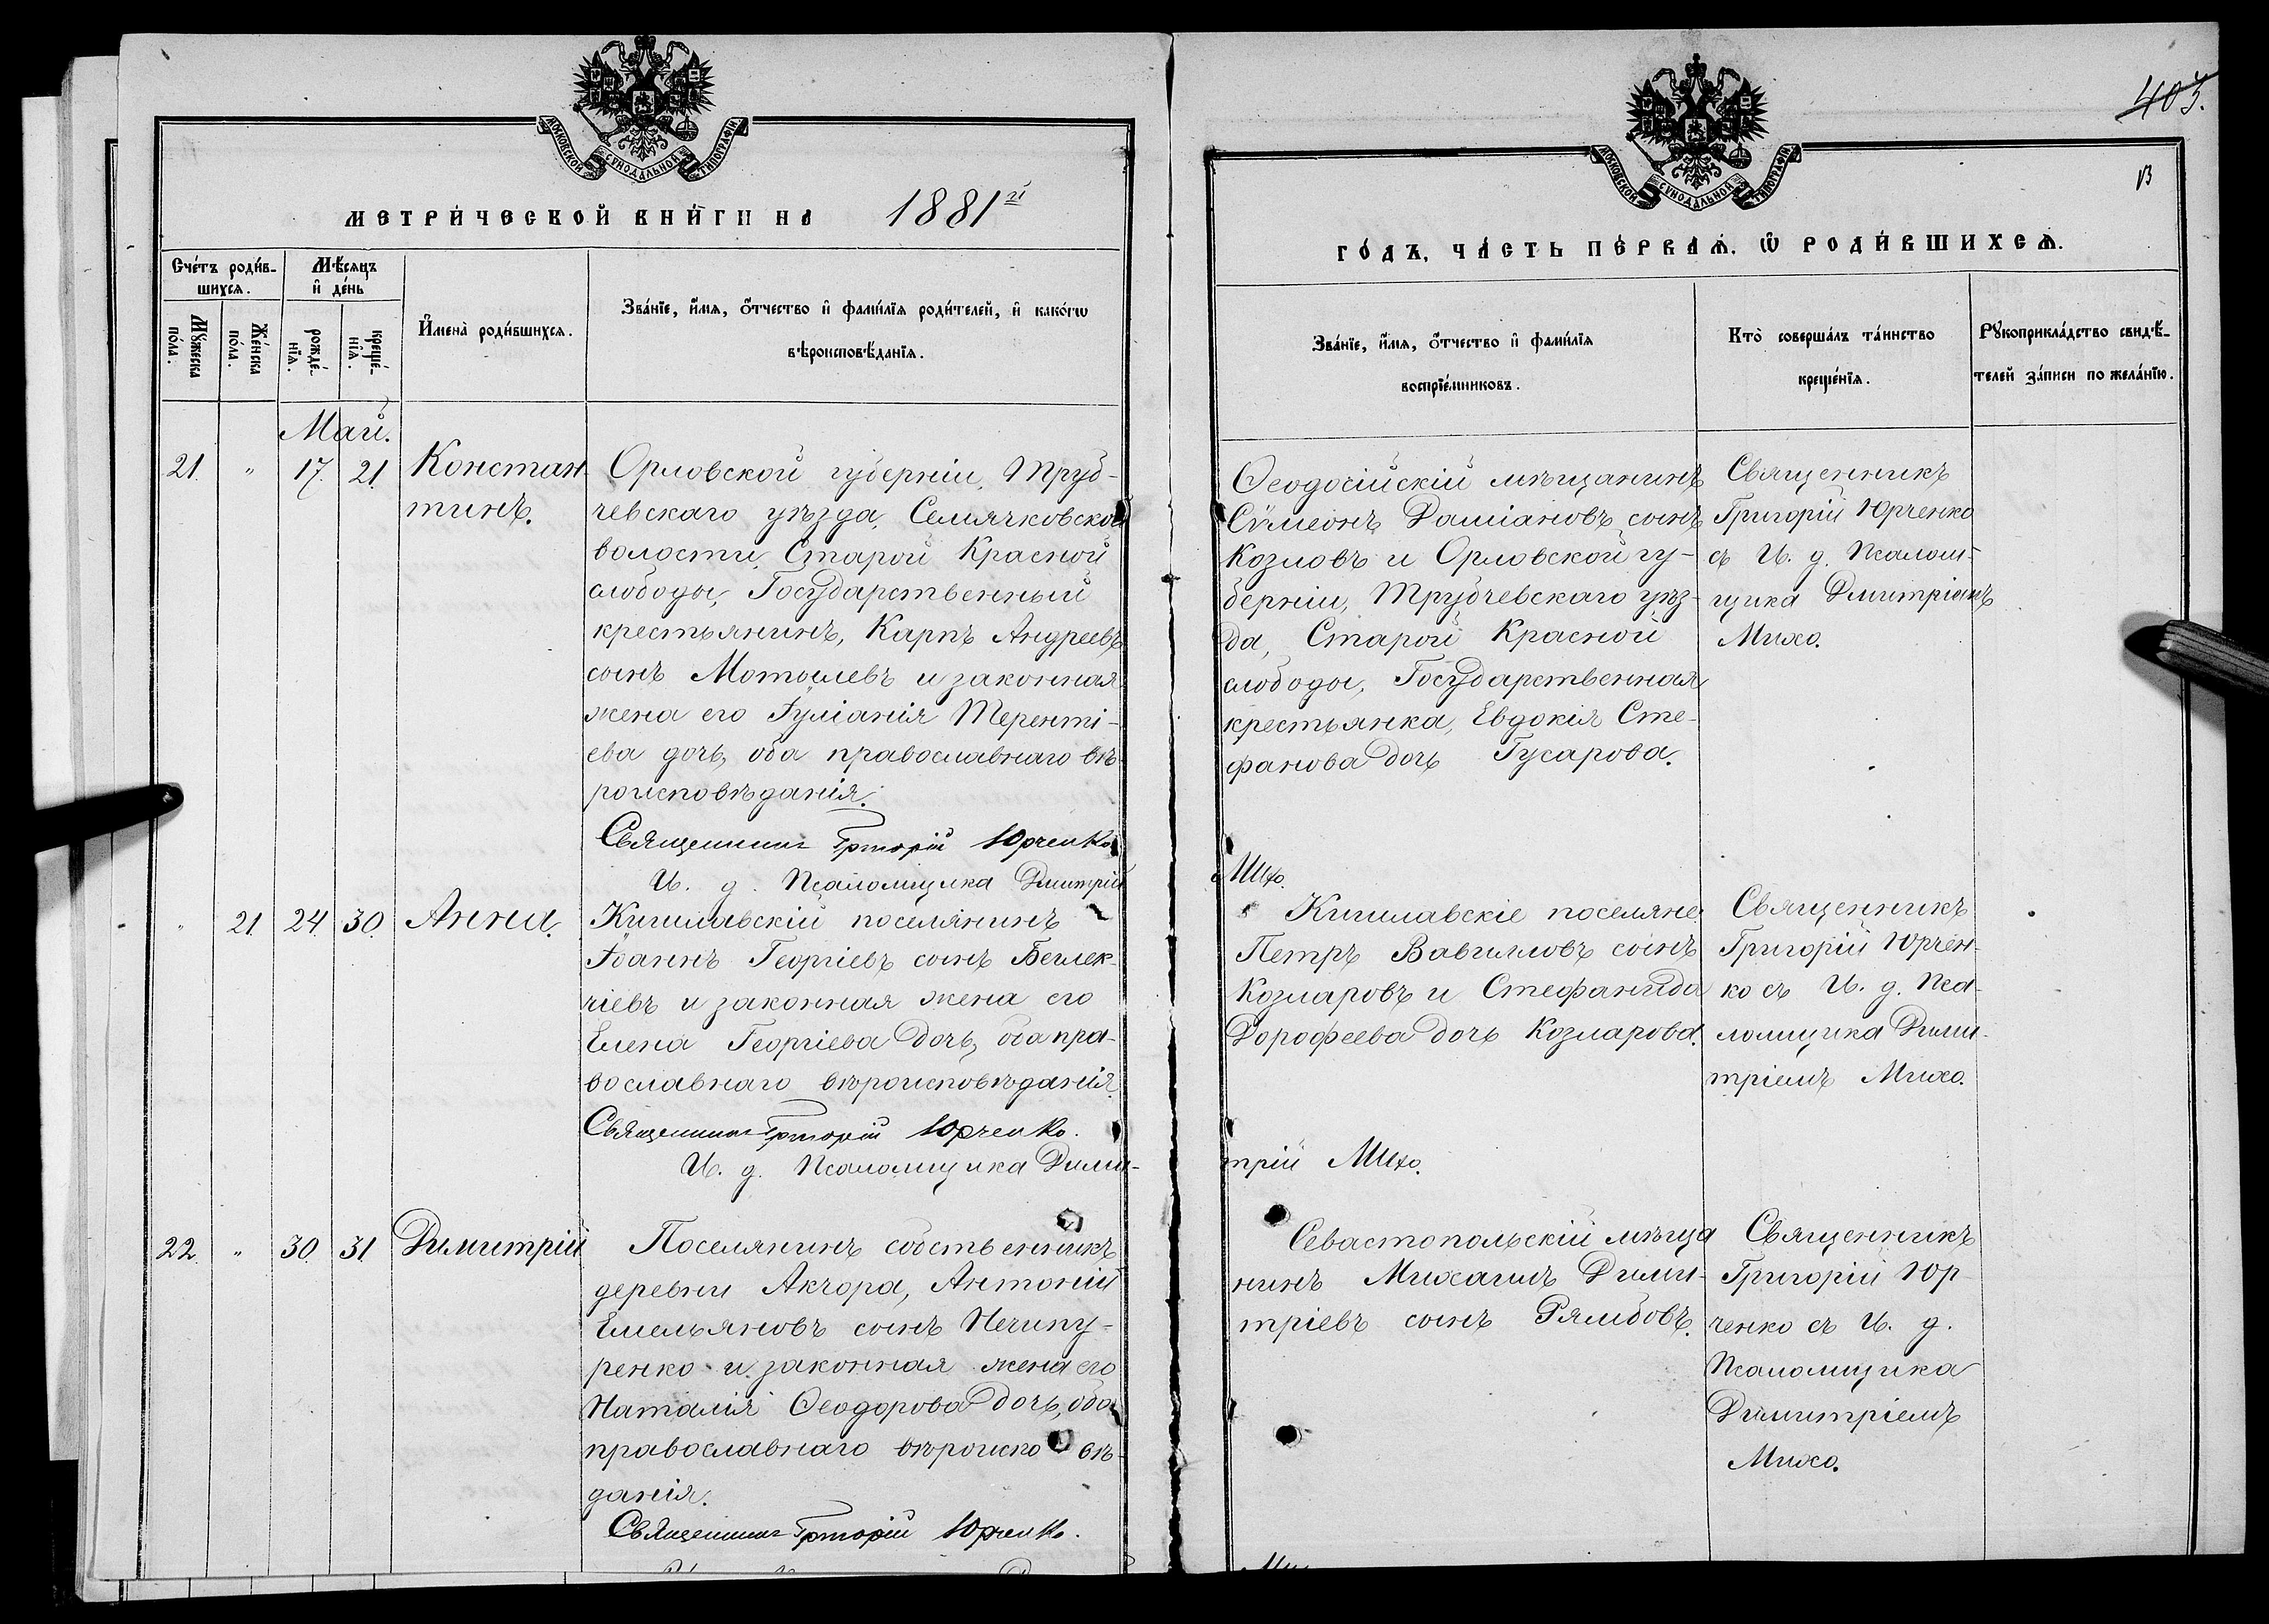 МОСКОВСКОЙ СѴНОДАЛЬНОЙ ТИПОГРАФІИ
МЕТРИ́ЧЕСКОЙ КНИ́ГИ НА 1881й
Сче́тъ роди́в-
шихся.
Мѣ́сяцъ
и҆ де́нь
Мꙋ́жеска
по́ла.
Же́нска
по́ла.
рожде́-
нїя.
креще́-
нїя.
И҆мена̀ роди́вшихся.
Зва́нїе, и҆́мя, ѻ҆́тчество и҆ фами́лїя роди́телей, и҆ како́гѡ
вѣроисповѣ́данїя.
Май.
21. " 17. 21. Констан-
тинъ.
Орловской губерніи, Труб-
чевскаго уѣзда, Семячковской
волости, Старой Красной
слободы, Государственный
крестьянинъ, Карпъ Андреевъ
сынъ Мотылевъ и законная
жена его Іуліанія Теренті-
ева дочь, оба православнаго вѣ-
роисповѣданія.
Священникъ Григорій Юрченко
И. д. Псаломщика Димитрій
" 21. 24. 30. Анна.
Кишлавскій поселянинъ
Іоаннъ Георгіевъ сынъ Беглек-
чіевъ и законная жена его
Елена Георгіева дочь, оба пра-
вославнаго вѣроисповѣданія.
Священникъ Григорій Юрченко.
И. д. Псаломщика Дими-
22. " 30. 31. Димитрій
Поселянинъ собственникъ
деревни Акчора, Антоній
Емельяновъ сынъ Нечипу-
ренко и законная жена его
Наталія Ѳеодорова дочь, оба
православнаго вѣроиспо вѣ-
данія.
Священникъ Григорій Юрченко.
403.
МОСКОВСКОЙ СѴНОДАЛЬНОЙ ТИПОГРАФІИ
ГО́ДЪ, ЧА́СТЬ ПЕ́РВАЯ, Ѽ РОДИ́ВШИХСЯ.
Зва́нїе, и҆́мя, ѻ҆́тчество и҆ фами́лїя
воспрїе́мниковъ.
Кто̀ соверша́лъ та́инство
креще́нїя.
Рꙋкоприкла́дство свидѣ́-
телей за́писи по жела́нїю.
Ѳеодосійскій мѣщанинъ
Сѵмеонъ Даміановъ сынъ
Козловъ и Орловской гу-
берніи, Трубчевскаго уѣз-
да, Старой Красной
слободы, Государственная
крестьянка, Евдокія Сте-
фанова дочь Гусарова.
Священникъ
Григорій Юрченко
съ И. д. Псалом-
щика Димитріемъ
Михо.
Михо.
Кишлавскіе поселяне
Петръ Вавиловъ сынъ
Козларовъ и Стефанида
Дорофеева дочь Козларова.
Священникъ
Григорій Юрчен-
ко съ И. д. Пса-
ломщика Дими-
тріемъ Михо.
трій Михо.
Севастопольскій мѣща
нинъ Михаилъ Дими-
тріевъ сынъ Рямбовъ.
Священникъ
Григорій Юр-
ченко съ И. д.
Псаломщика
Димитріемъ
Михо.